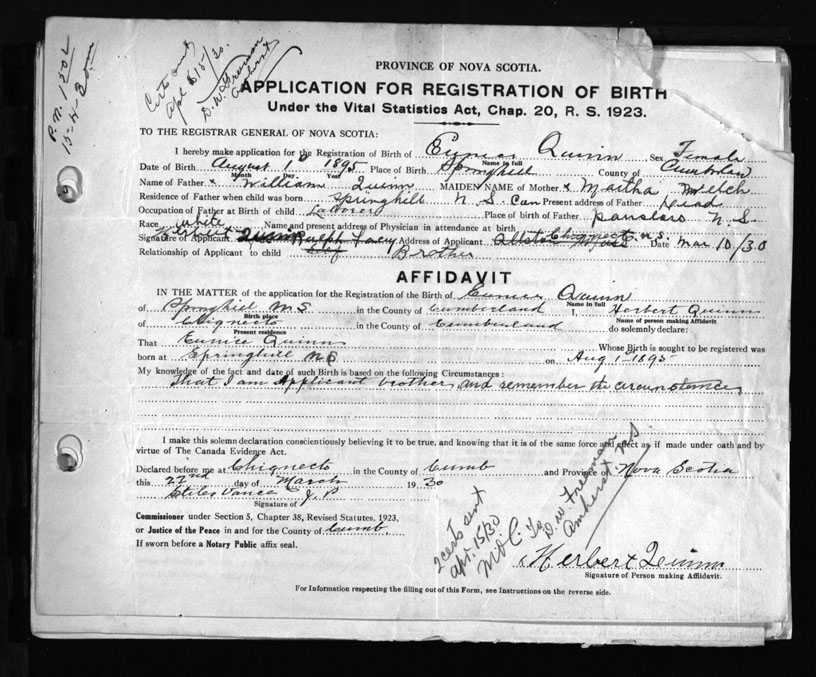 P.N. 1302
15-4-30
Certs sent
Apl 15/30.
D.W. Freeman
Amherst
PROVINCE OF NOVA SCOTIA.
APPLICATION FOR REGISTRATION OF BIRTH
Under the Vital Statistics Act, Chap. 20, R. S. 1923.
TO THE REGISTRAR GENERAL OF NOVA SCOTIA:
I hereby make application for the Registration of Birth of Eunice Quinn Sex Female
Name in full
Date of Birth August 1st 1895 Place of Birth Springhill County of Cumberland
Month Day. Year
Name of Father x William Quinn MAIDEN NAME of Mother x Martha Welch
Residence of Father when child was born Springhill N.S. Can Present address of Father Dead
Occupation of Father at Birth of child Laborer Place of Birth of Father Parrsboro N.S.
Race White Name and present address of Physician in attendance at birth
Signature of Applicant Herbert Quinn Ralph Address of Applicant Allston Mass Chignecto N.S. Date Mar 10/30
Relationship of Applicant to child Brother
AFFIDAVIT
IN THE MATTER of the application for the Registration of the Birth of Eunice Quinn
Name in full
of Springhill N.S. in the County of Cumberland I Herbert Quinn
Birth place Name of person making Affidavit
of Chignecto in the County of Cumberland do solemnly declare:
Present residence
That Eunice Quinn Whose Birth is sought to be registered was
born at Springhill N.S. on Aug 1st 1895
My knowledge of the fact and date of such Birth is based on the following Circumstances:
That I am Applicant brother and remember the circumstances
I make this solemn declaration conscientiously believing it to be true, and knowing that it is of the same force and effect as if made under oath and by
virtue of The Canada Evidence Act.
Declared before me at Chignecto in the County of Cumb and Province of Nova Scotia
this 22nd day of March 1930
Stiles Vance J.P
Signature of
Commissioner under Section 5, Chapter 38, Revised Statutes, 1923,
or Justice of the Peace in and for the County of Cumb.
If sworn before a Notary Public affix seal.
2 certs sent
apr. 15/30
To
D.W. Freeman
Amherst N.S.
Herbert Quinn
Signature of Person making Affidavit.
For Information respecting the filling out of this Form, see Instructions on the reverse side.